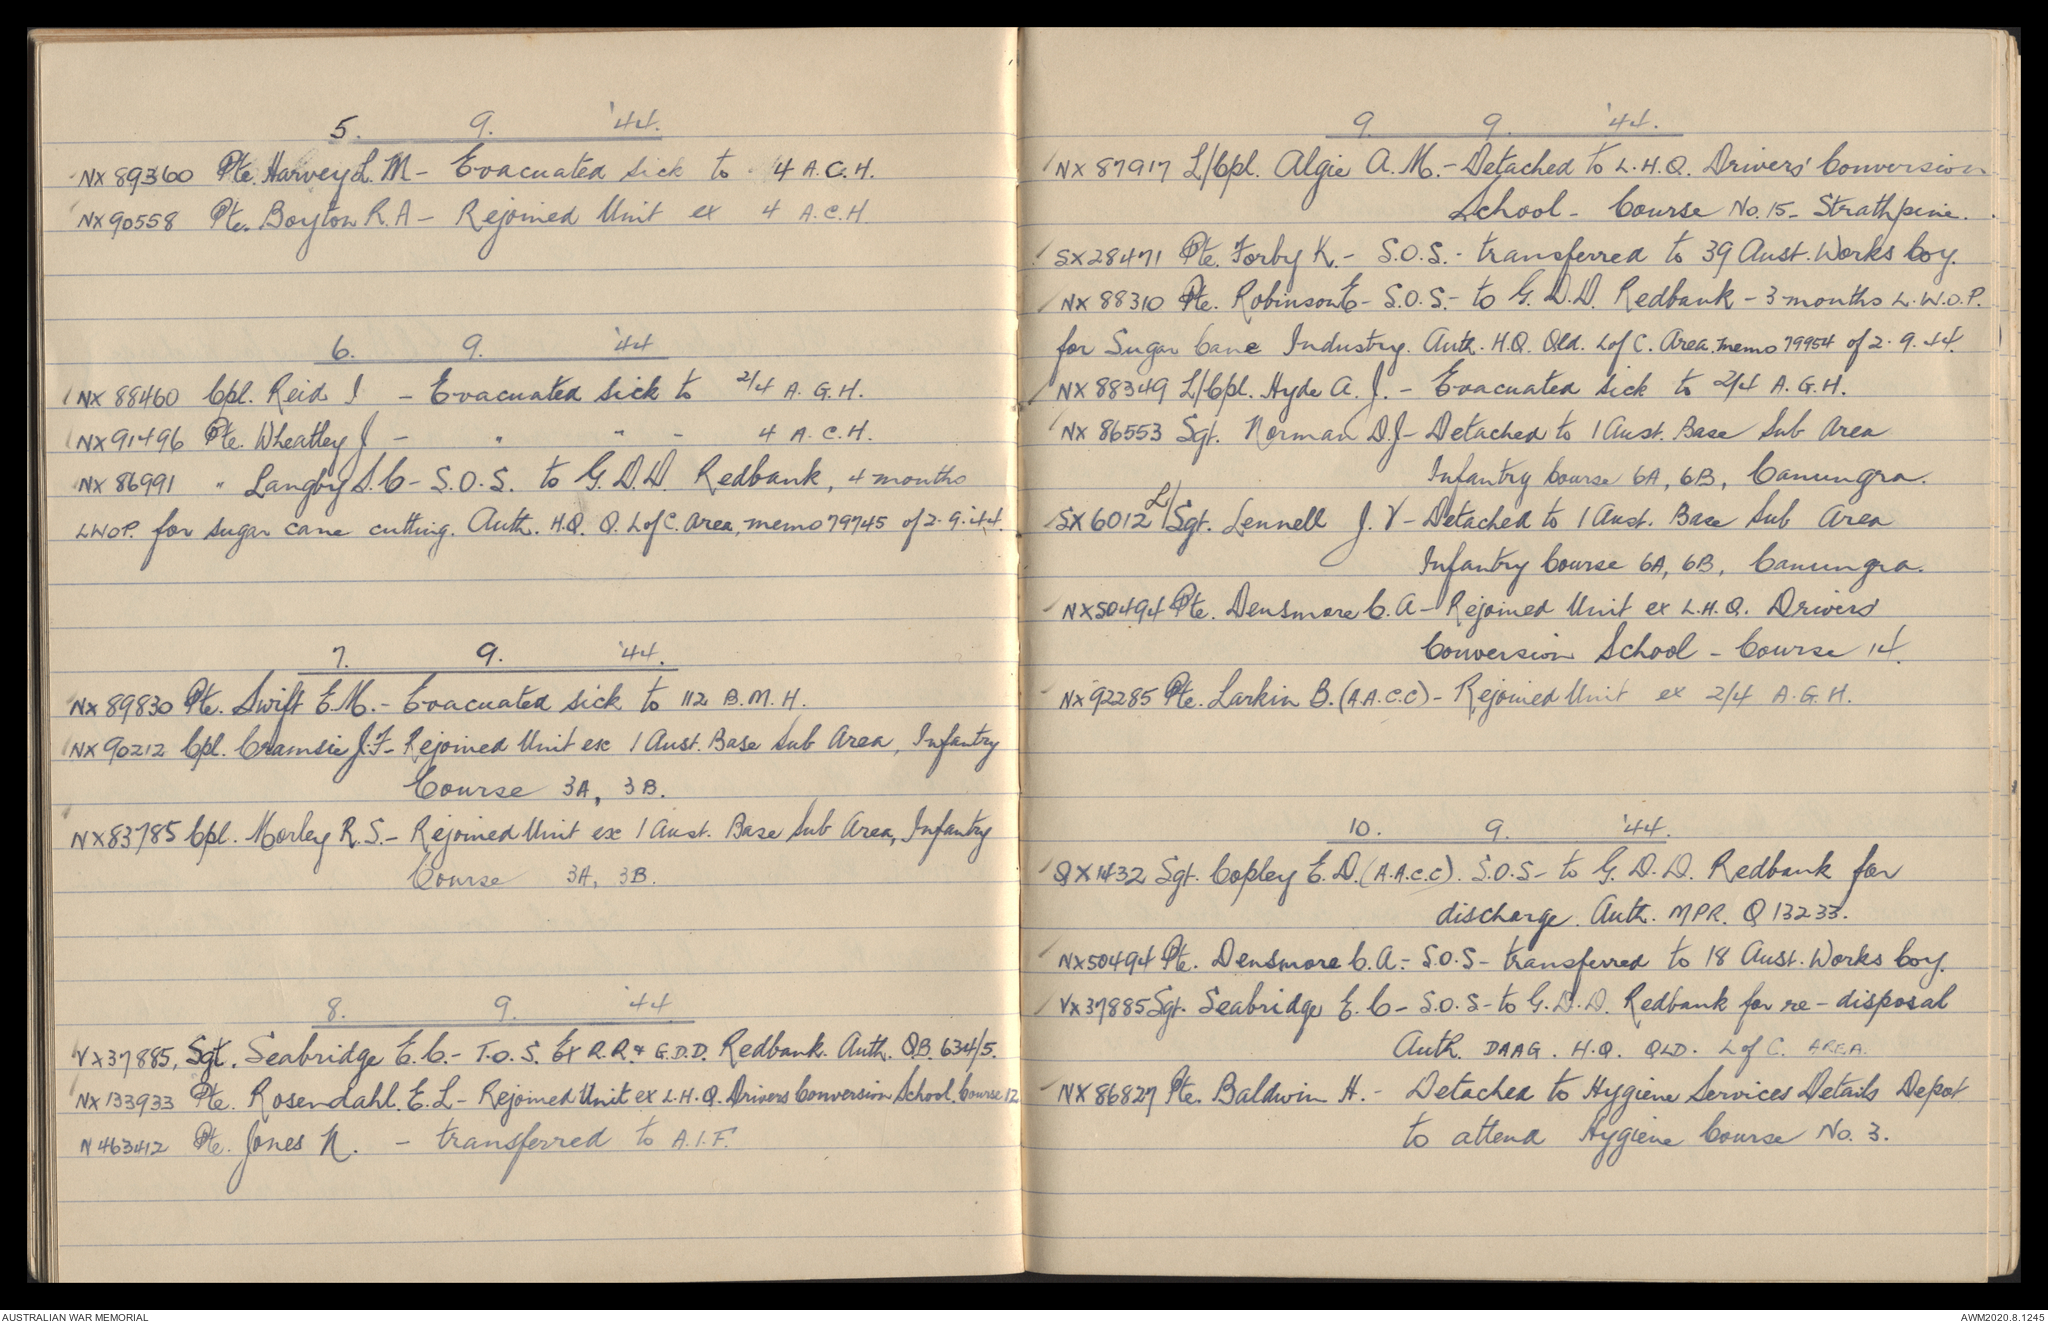 5. 9. '44.
NX 89360 Pte. Harvey L. M - Evacuated sick to 4 A.C.H.
NX 90558 Pte. Boyton R. A - Rejoined Unit ex 4 A.C.H.
6. 9. '44
NX 88460 Cpl. Reid I - Evacuated sick to 2/4 A. G. H.
NX 91496 Pte. Wheatley J - " " - 4 A. C. H.
NX 86991 " Langby S. C - S.O.S. to G. D. D. Redbank, 4 months
LWOP. for sugar cane cutting. Auth. H.Q. Q. L of C. Area, memo 79745 of 2. 9. '44.
7. 9. '44.
NX 89830 Pte. Swift E. M. - Evacuated sick to 112 B. M. H.
NX 90212 Cpl. Cramsie J. F - Rejoined Unit ex 1 Aust. Base Sub Area, Infantry
Course 3A, 3B.
NX 83785 Cpl. Morley R. S. - Rejoined Unit ex 1 Aust. Base Sub Area, Infantry
Course 3A, 3B.
8. 9. '44
VX 37885, Sgt. Seabridge E. C. - T.O.S. Ex R.R. & G.D.D. Redbank. Auth. QB. 634/5.
NX 133933 Pte. Rosendahl. E. L - Rejoined Unit ex L.H.Q. Drivers Conversion School. Course 12
N 463412 Pte. Jones N. - transferred to A.I.F.
9. 9. '44.
NX 87917 L/Cpl. Algie A. M. - Detached to L.H.Q. Drivers' Conversion
School - Course No. 15 - Strathpine.
SX 28471 Pte. Forby K. - S.O.S. - transferred to 39 Aust. Works Coy.
NX 88310 Pte. Robinson E - S.O.S. - to G. D. D. Redbank - 3 months L.W.O.P.
for Sugar Cane Industry. Auth. H.Q. Qld. L of C. Area. memo 79954 of 2. 9. 44.
NX 88349 L/Cpl. Hyde A. J. - Evacuated sick to 2/4 A. G. H.
NX 86553 Sgt. Norman D. J - Detached to 1 Aust. Base Sub Area
Infantry Course 6A, 6B, Canungra.
SX 6012 L/Sgt. Lennell J. V - Detached to 1 Aust. Base Sub Area
Infantry Course 6A, 6B, Canungra.
NX 50494 Pte. Densmore C. A - Rejoined Unit ex L.H.Q. Drivers'
Conversion School - Course 14.
NX 92285 Pte. Larkin B. (A.A.C.C) - Rejoined Unit ex 2/4 A.G.H.
10. 9. '44.
QX 1432 Sgt. Copley E. D. (A.A.C.C). S.O.S - to G. D. D. Redbank for
discharge. Auth. MPR. Q 13233.
NX 50494 Pte. Densmore C. A. - S.O.S - transferred to 18 Aust. Works Coy.
VX 37885 Sgt. Seabridge E. C - S.O.S - to G. D. D. Redbank for re-disposal
Auth. DAAG. H.Q. QLD. L of C. AREA.
NX 86827 Pte. Baldwin H. - Detached to Hygiene Services Details Depot
to attend Hygiene Course No. 3.
AUSTRALIAN WAR MEMORIAL
AWM2020.8.1245